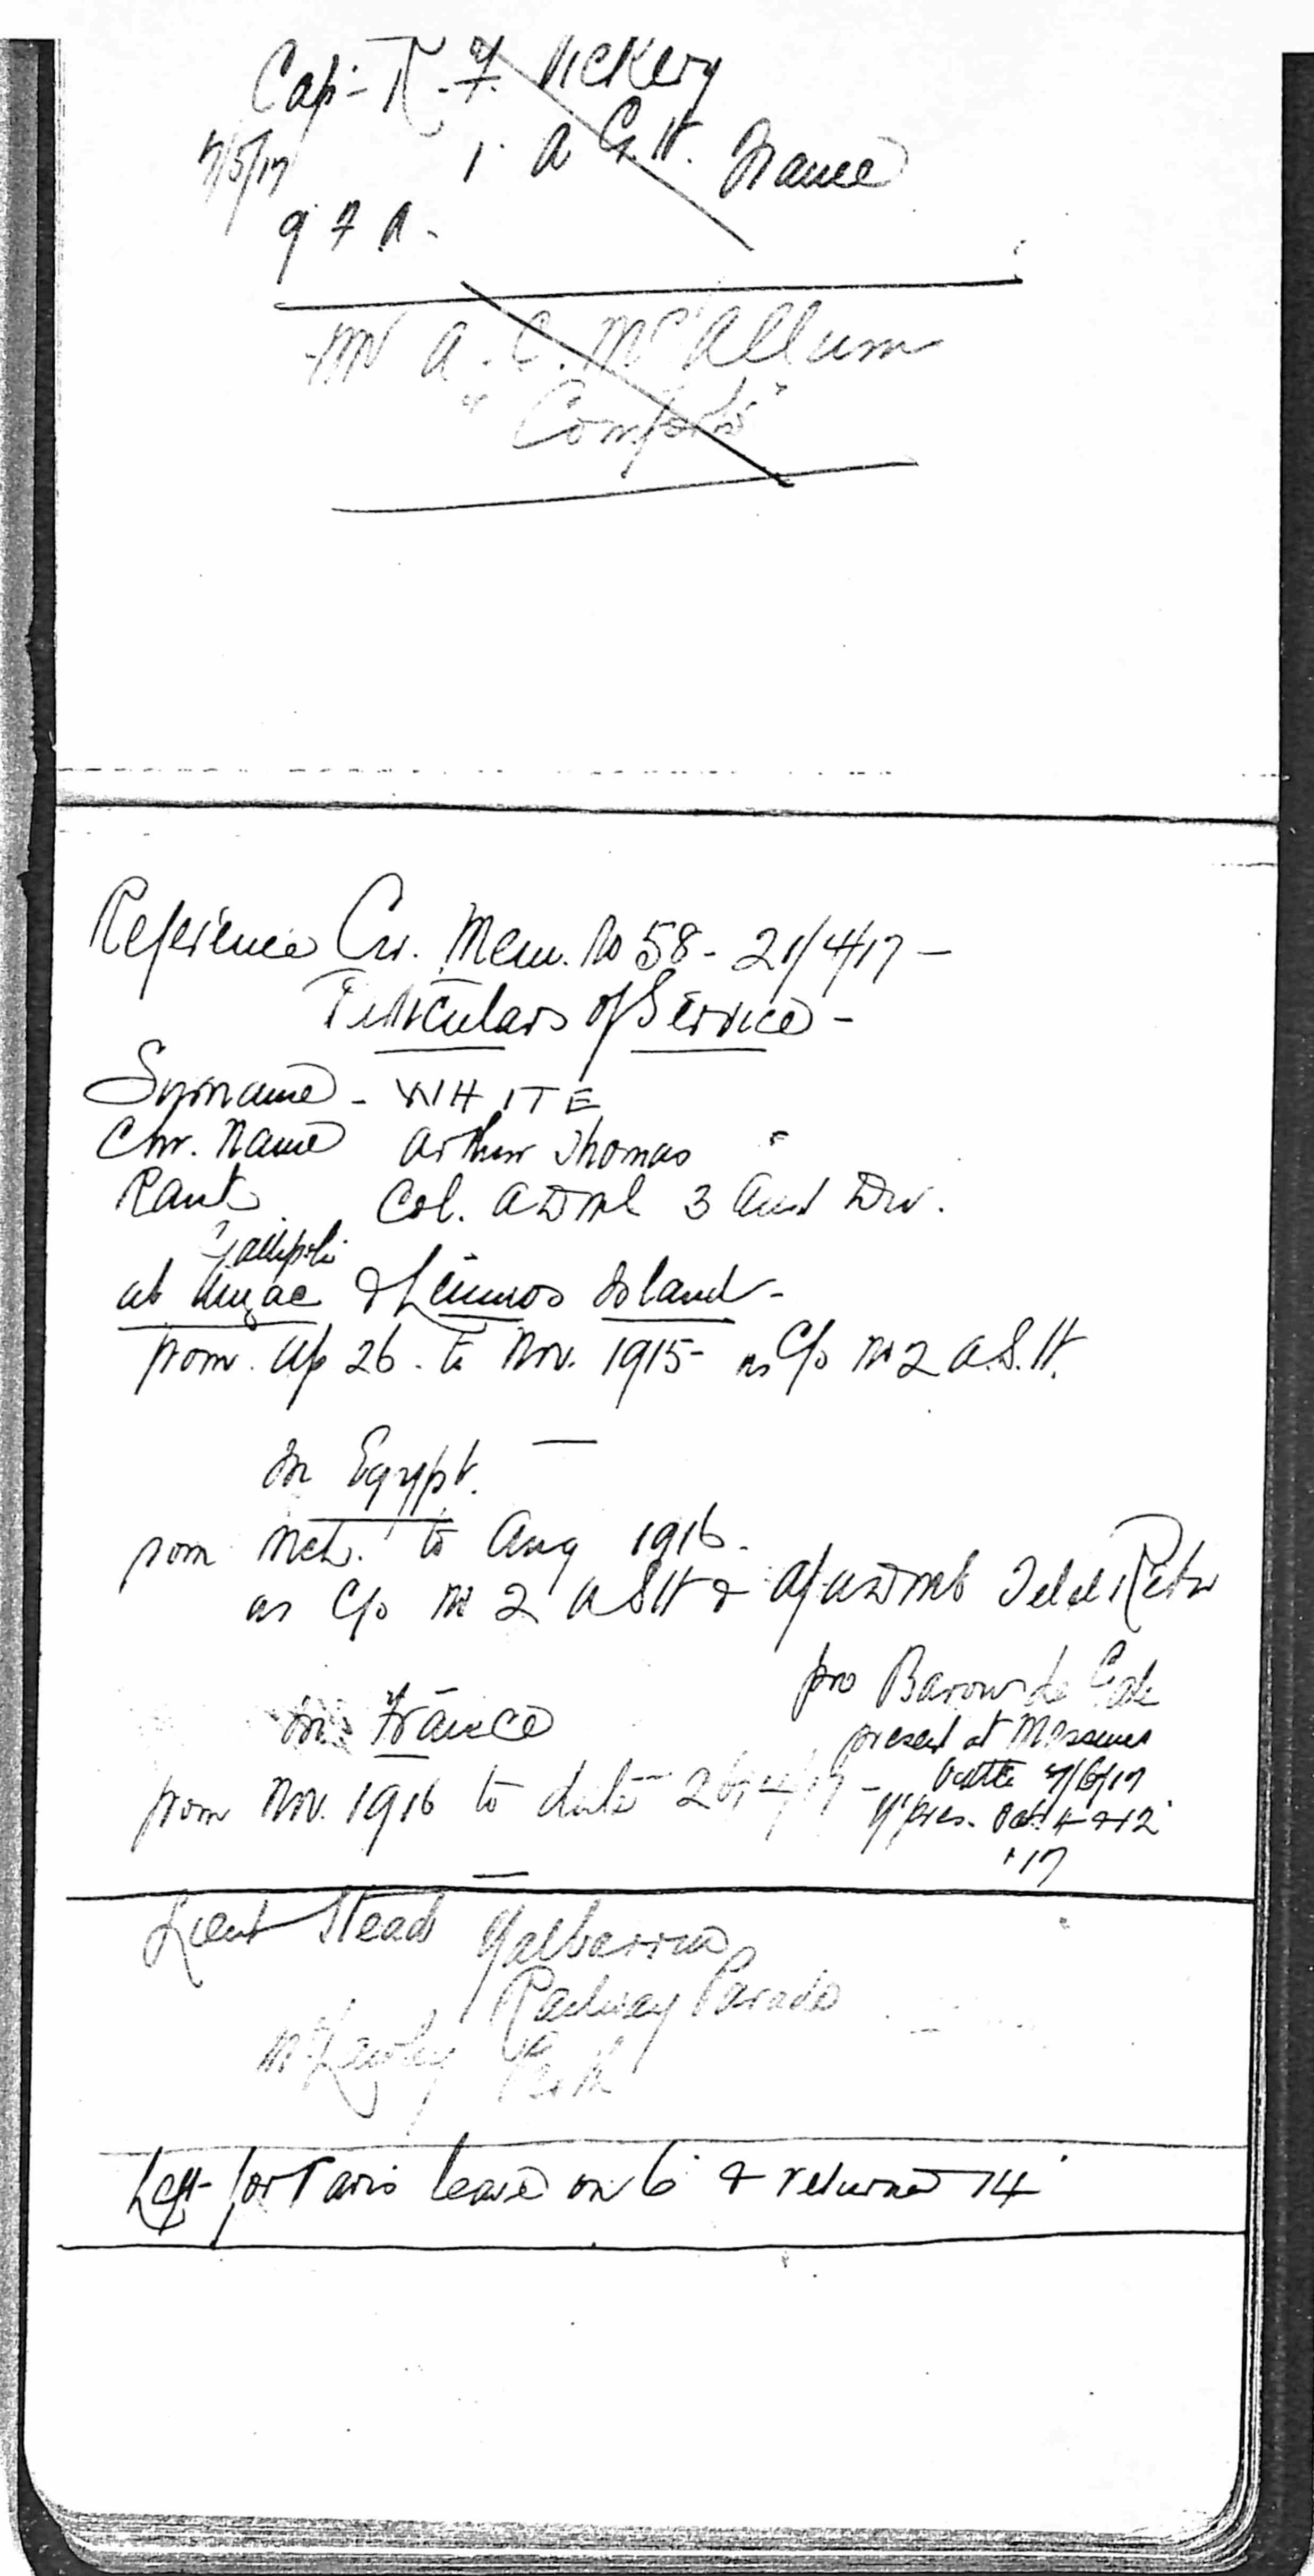 Cap- R. F. Vickery
7/5/17 1. A G. H. France
9 F A.
Mr A. C. McCallum
"Comforts"
Reference Cir. Mem. No 58 - 21/4/17 -
Particulars of Service -
Surname - WHITE
Chr. Name Arthur Thomas
Rank Col. ADMS 3 Aust Div.
Gallipoli
at Anzac & Lemnos Island -
from Ap 26. to Nov. 1915 as C/o No 2 A.S.H.
In Egypt. —
from Mch. to Aug 1916.
as C/o No 2 ASH & A/ADMS Tel el Kebir
In France
from Nov. 1916 to date 26/4/17 -
pro Barow de
present at Messines
battle 7/6/17
Ypres. Oct 4 & 12
'17
Lieut Stead
Railway Parade
Perth
Left for Paris leave on 6 & returned 14